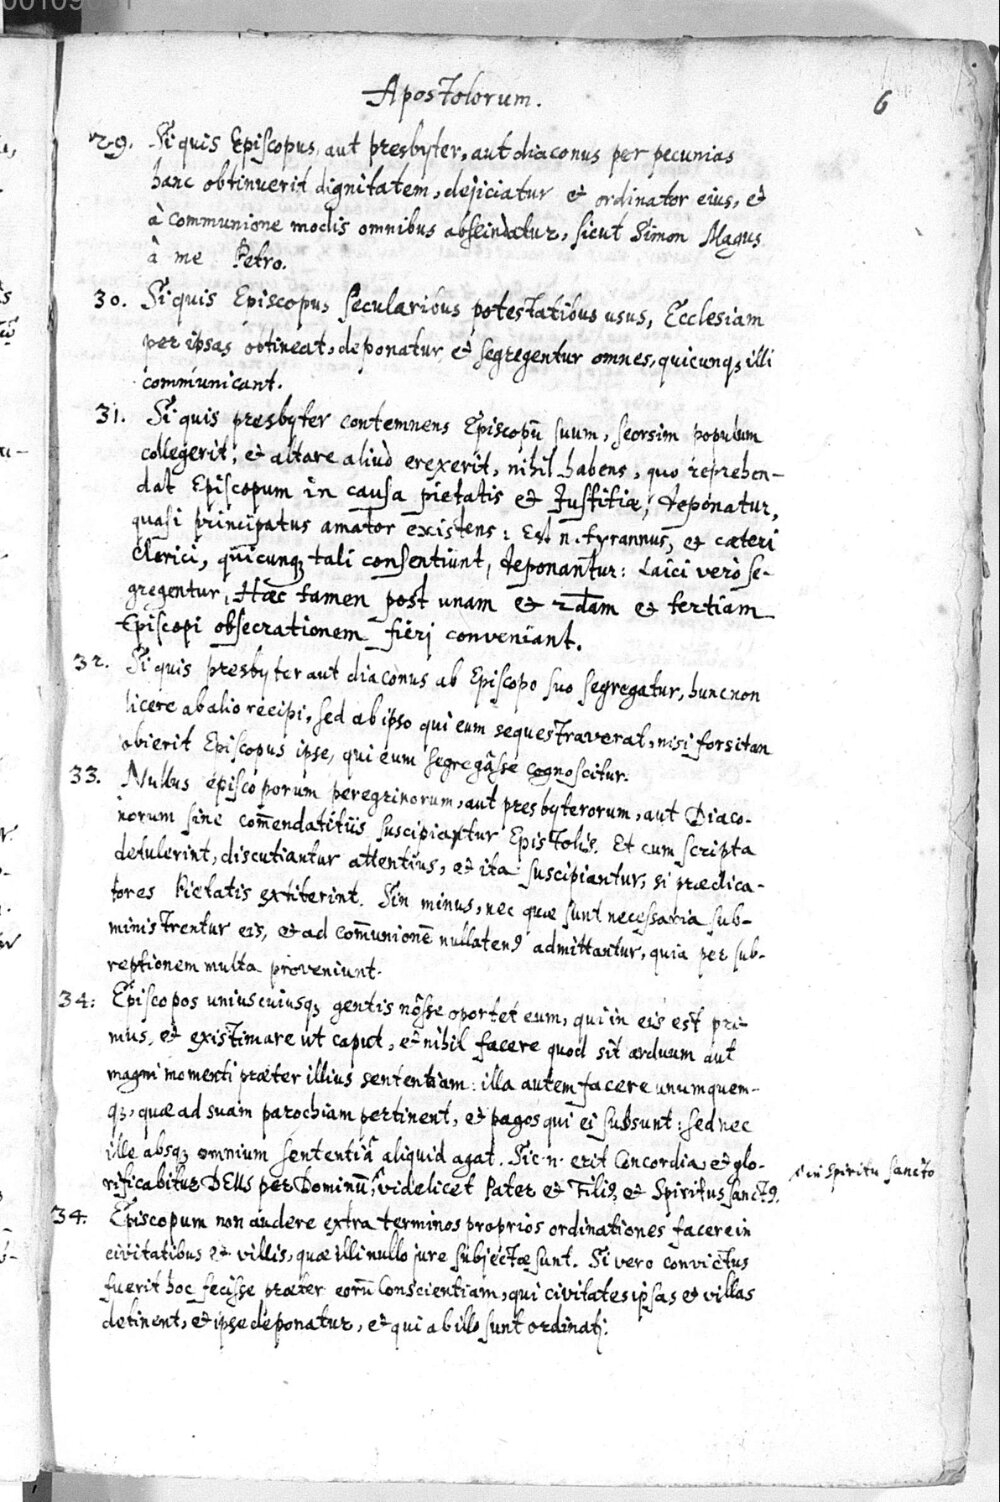 Apostolorum.
6
29. Si quis Episcopus, aut presbyter, aut diaconus per pecunias
hanc obtinuerit dignitatem, dejiciatur et ordinator eius, et
à communione modis omnibus abscindatur, sicut Simon Magus
à me Petro.
30. Si quis Episcopus secularibus potestatibus usus, Ecclesiam
per ipsas obtineat, deponatur, et segregentur omnes, quicunq; illi
communicant.
31. Si quis presbyter contemnens Episcopū suum, seorsim populum
collegerit, et altare aliud erexerit, nihil habens, quo reprehen-
dat Episcopum in causa pietatis et Justitiæ, deponatur,
quasi principatus amator existens: Est n. tyrannus, et cæteri
Clerici, quicunq; tali consentiunt, deponantur: Laici verò se-
gregentur, Hæc tamen post unam et 2dam et tertiam
Episcopi obsecrationem fieri conveniant.
32. Si quis presbyter aut diaconus ab Episcopo suo segregatur, hunc non
licere ab alio recipi, sed ab ipso qui eum sequestraverat, nisi forsitan
obierit Episcopus ipse, qui eum segregâsse cognoscitur.
33. Nullus episcoporum peregrinorum, aut presbyterorum, aut Diaco-
norum sine com̄endatitiis suscipiantur Epistolis. Et cum scripta
detulerint, discutiantur attentius, et ita suscipiantur, si prædica-
tores Pietatis extiterint. Sin minus, nec quæ sunt necessaria sub-
ministrentur eis, et ad com̄unionē nullaten9 admittantur, quia per sub-
reptionem multa proveniunt.
34: Episcopos uniuscuiusq; gentis nôsse oportet eum, qui in eis est pri-
mus, et existimare ut caput, et nihil facere quod sit arduum aut
magni momenti præter illius sententiam: illa autem facere unumquem-
q;, quæ ad suam parochiam pertinent, et pagos qui ei subsunt: sed nec
ille absq; omnium sententiâ aliquid agat. Sic n. erit Concordia, et glo-
rificabitur DEUS per Dominū, videlicet Pater et Fili9 et Spiritus Sanct9.
in Spiritu Sancto
34. Episcopum non audere extra terminos proprios ordinationes facere in
civitatibus et villis, quæ illi nullo jure subjectæ sunt. Si vero convictus
fuerit hoc fecisse præter eorū Conscientiam, qui civitates ipsas et villas
detinent, et ipse deponatur, et qui ab illo sunt ordinati.